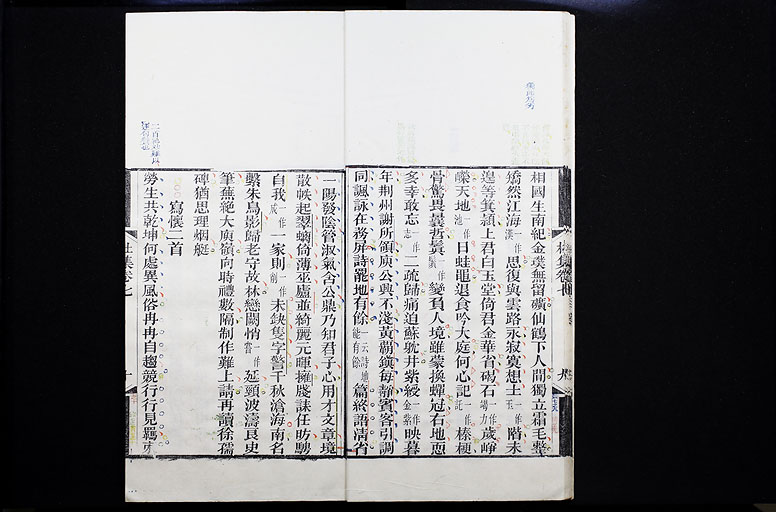 相國生南紀金璞無留礦仙鶴下人間獨立霜毛整
矯然江海一作漢思復與雲路永寂寞想土一作玉階未
遑等箕潁上君白玉堂倚君金華省碣石一作力歲崢
嶸天地一作池日蛙黽退食吟大庭何心記一作記榛梗
骨驚畏曩哲鬒一作鬢變負人境雖蒙換蟬冠右地恧
多幸敢忘一作志二疏歸痛迫蘇躭井紫綬一作金紫映暮
年荆州謝所領庾公興不淺黃霸鎭每靜賓客引調
同諷詠在務屏詩罷地有餘一云詩地能有餘篇終語淸省
一陽發陰管淑氣含公鼎乃知君子心用才文章境
散帙起翠螭倚薄巫廬並綺麗元暉擁牋誄任昉騁
自我一作成一家則一作削未缺隻字警千秋滄海南名
繫朱鳥影歸老守故林戀闕悄一作延頸波濤良史
筆蕪絶大庾嶺向時禮數隔制作難上請再讀徐孺
碑猶思理烟艇
寫懷二首
勞生共乾坤何處異風俗冉冉自趨競行行見羈束
杜集卷七